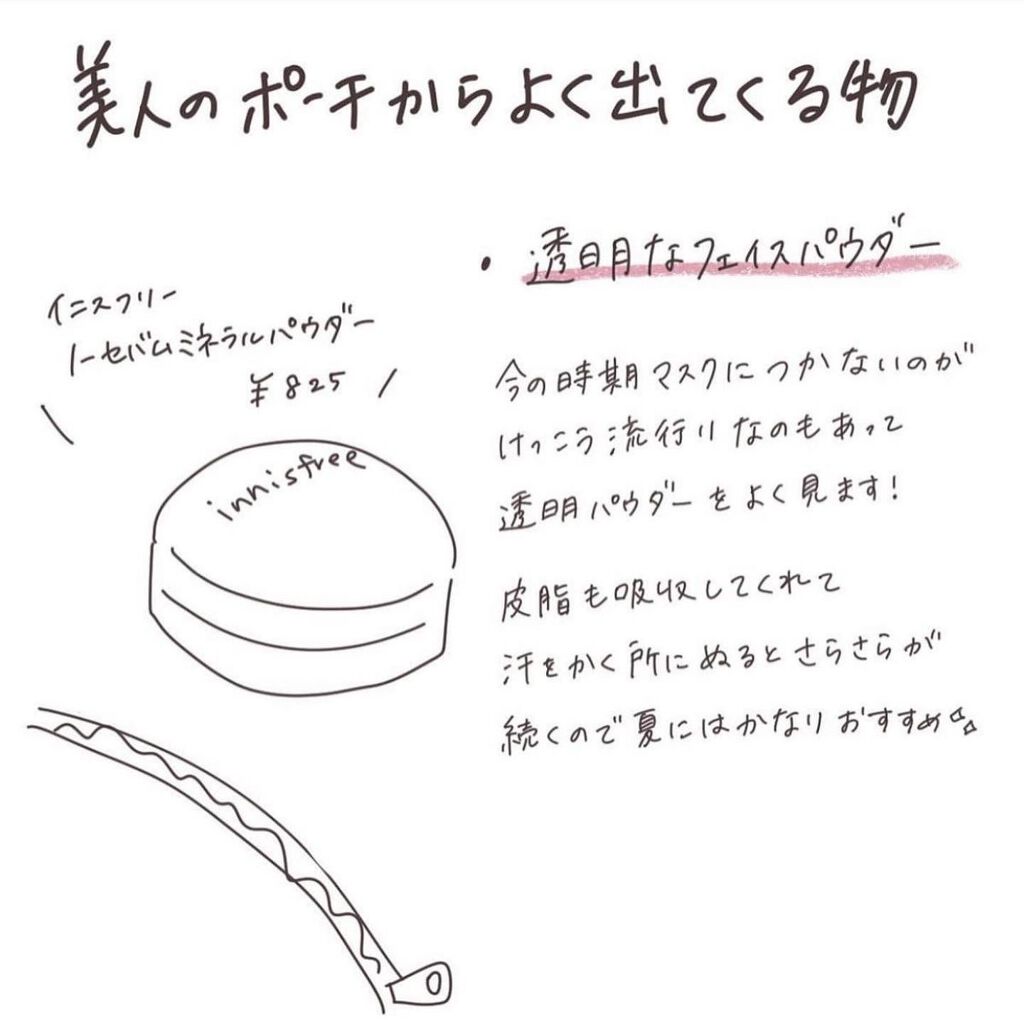 美人のポーチからよく出てくる物
・透明なフェイスパウダー
イニスフリー
ノーセバムミネラルパウダー
¥825
innisfree
今の時期マスクにつかないのが
けっこう流行りなのもあって
透明パウダーをよく見ます!
皮脂も吸収してくれて
汗をかく所にぬるとさらさらが
続くので夏にはかなりおすすめ